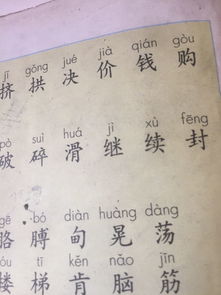 jǐ gǒng jué jià qián gòu
挤 拱 决 价 钱 购
pò suì huá jì xù fēng
破 碎 滑 继 续 封
gē bó diàn huàng dàng
胳 膊 甸 晃 荡
tī kěn nǎo jīn
楼 梯 肯 脑 筋